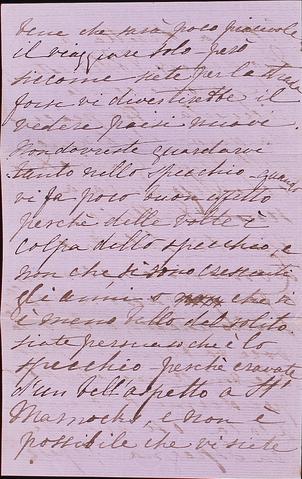 bene che sarà poco piacevole
il viaggiare solo però
siccome siete per la strada
forse vi divertirebbe il
vedere paesi nuovi
non dovreste guardarvi
tanto nello specchio quando
vi fa poco buon effetto
perchè delle volte è
colpa dello specchio e
non che si sono cresciuti
gli anni o che si
è meno bello del solito
siate persuaso che è lo
specchio perchè eravate
d'un bell'aspetto a St
e non è
possibile che vi siete